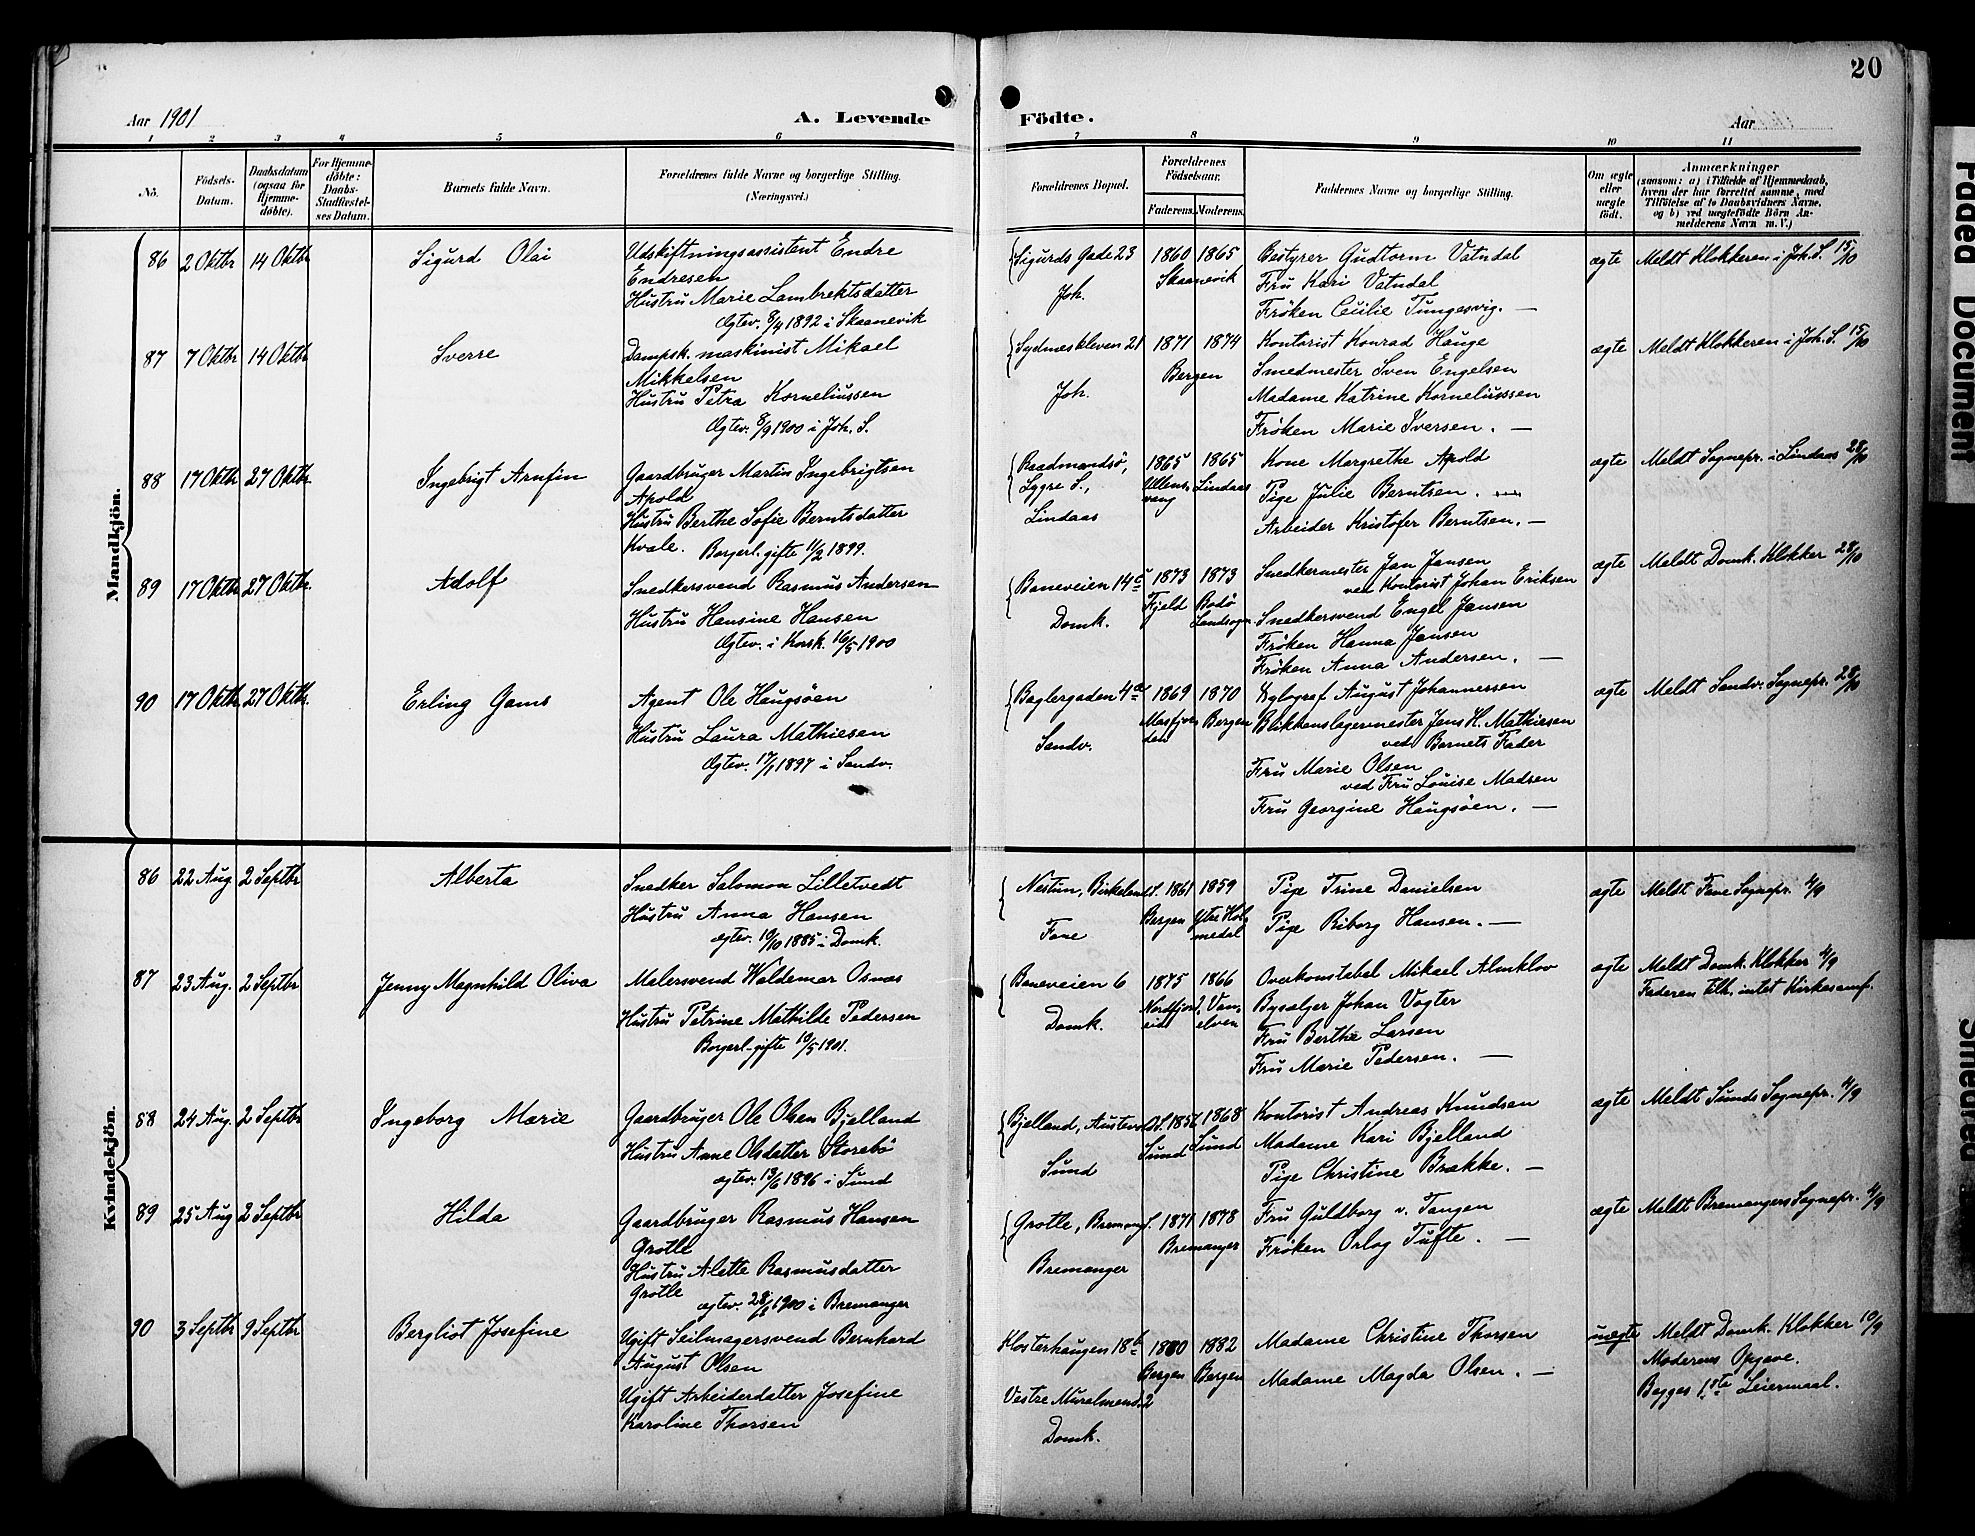 20
Aar 1901
A. Levende
Födte.
Aar
1 2 3 4 5 6 7 8 9 10 11
Nö.
Födsels-
Datum.
Daabsdatum
(ogsaa for
Hjemme-
döbte).
For Hjemme-
döbte:
Daabs-
Stadfæstel-
ses Datum.
Barnets fulde Navn.
Forældrenes fulde Navne og borgerlige Stilling.
(Næringsvei.)
Forældrenes Bopæl.
Forældrenes
Födselsaar.
Faderens.
Moderens.
Faddernes Navne og borgerlige Stilling.
Om ægte
eller
uægte
födt.
Anmærkninger
(saasom: a) i Tilfælde af Hjemmedaab,
hvem der har forrettet samme, med
Tilföielse af to Daabsvidners Navne.
og b) ved uægtefödte Börn An-
melderens Navn m. V.)
Mandkjön.
86 2 Oktbr 14 Oktbr Sigurd Olai
Udskiftningsassistent Endre
Endresen
Hustru Marie Lambrektsdatter
Ægtev. 8/4 1892 i Skaanevik
Sigurds Gade 23
Joh.
1860 1865
Skaanevik
Bestyrer Gudtorm Vatndal
Fru Kari Vatndal
Frøken Cecilie Tungesvig. —
ægte
Meldt Klokkeren i Joh. S. 15/10
87 7 Oktbr 14 Oktbr Sverre
Dampsk. maskinist Mikael
Mikkelsen
Hustru Petra Korneliussen
Ægtev. 8/9 1900 i Joh. S.
Sydneskleven 21
Joh.
1871 1874
Bergen
Kontorist Konrad Hauge
Smedmester Sven Engelsen
Madame Katrine Korneliussen
Frøken Marie Iversen. —
ægte
Meldt Klokkeren i Joh. S. 15/10
88 17 Oktbr 27 Oktbr Ingebrigt Arnfin
Gaardbruger Martin Ingebrigtsen
Apold
Hustru Berthe Sofie Berntsdatter
Kvale. Borgerl. gifte 11/2 1899.
Raadmandsö,
Lygre S.,
Lindaas
1865 1865
Ullens-
vang
Lindaas
Kone Margrethe Apold
Pige Julie Berntsen.
Arbeider Kristofer Berntsen. —
ægte
Meldt Sognepr. i Lindaas 28/10
89 17 Oktbr 27 Oktbr. Adolf
Snedkersvend Rasmus Andersen
Hustru Hansine Hansen
Ægtev. i Korsk. 16/5 1900
Baneveien 14c
Domk.
1873 1873
Fjeld
Bodö
Landsogn
Snedkermester Jan Jansen
ved Kontorist Johan Eriksen
Snedkersvend Engel Jansen
Frøken Hanna Jansen
Frøken Anna Andersen. —
ægte
Meldt Domk. Klokker 28/10
90 17 Oktbr 27 Oktbr. Erling Gams
Agent Ole Haugsöen
Hustru Laura Mathiesen
Ægtev. 17/1 1897 i Sandv.
Baglergaden 4a
Sandv.
1869 1870
Masfjor-
den
Bergen
Xylograf August Johannessen
Blikkenslagermester Jens H. Mathiesen
ved Barnets Fader
Fru Marie Olsen
ved Fru Louise Madsen
Fru Georgine Haugsöen. —
ægte
Meldt Sandv. Sognepr. 28/10
Kvindekjön.
86 22 Aug. 2 Septbr Alberta
Snedker Salomon Lilletvedt
Hustru Anna Hansen
ægtev. 10/10 1885 i Domk.
Nestun, Birkeland
Fane
1861 1859
Bergen
Ytre Hol-
medal
Pige Trine Danielsen
Pige Riborg Hansen. —
ægte
Meldt Fane Sognepr. 4/9
87 23 Aug. 2 Septbr Jenny Magnhild Oliva
Malersvend Waldemar Osnæs
Hustru Petrine Mathilde Pedersen
Borgerl. gifte 10/5 1901.
Baneveien 6
Domk.
1875 1866
Nordfjord-
eid
Van-
elven
Overkonstabel Mikael Almklov
Bysælger Johan Vogter
Fru Berthe Larsen
Fru Marie Pedersen. —
ægte
Meldt Domk. Klokker 4/9
Faderen tilh. intet Kirkesamf.
88 24 Aug. 2 Septbr Ingeborg Marie
Gaardbruger Ole Olsen Bjelland
Hustru Anne Olsdatter Storebö
ægtev. 13/6 1896 i Sund
Bjelland, Austevold
Sund
1856 1868
Sund Sund
Kontorist Andreas Knudsen
Madame Kari Bjelland
Pige Christine Brække. —
ægte
Meldt Sunds Sognepr. 4/9
89 25 Aug 2 Septbr Hilda
Gaardbruger Rasmus Hansen
Grotle
Hustru Alette Rasmusdatter
Grotle
ægtev. 28/6 1900 i Bremanger
Grotle, Bremang.
Bremanger
1871 1878
Bremanger
Fru Guldborg v. Tangen
Frøken Orlog Tufte. —
ægte
Meldt Bremangers Sognepr. 4/9
90 3 Septbr 9 Septbr Bergliot Josefine
Ugift Seilmagersvend Bernhard
August Olsen
Ugift Arbeiderdatter Josefine
Karoline Thorsen
Klosterhaugen 18b
Vestre Muralmend. 2
Domk.
1880 1882
Bergen Bergen
Madame Christine Thorsen
Madame Magda Olsen. —
uægte
Meldt Domk. Klokker 10/9
Moderens Opgave.
Begges 1ste Leiermaal.
Faded Document
Smeared